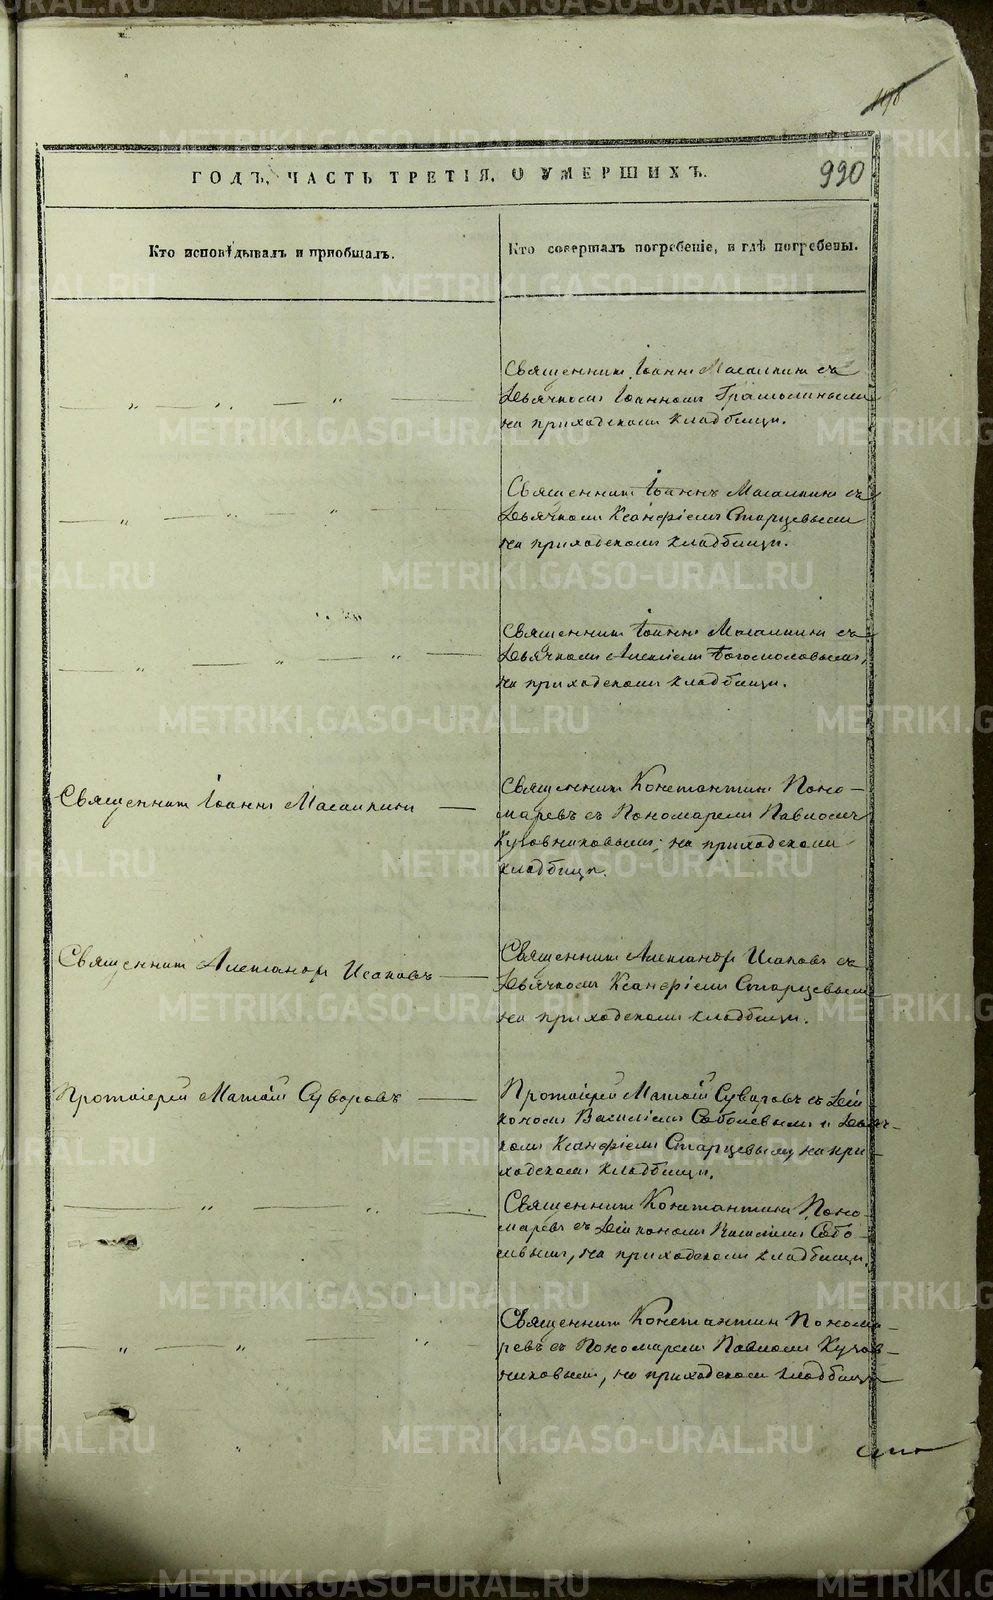 990
ГОДЪ, ЧАСТЬ ТРЕТІЯ, О УМЕРШИХЪ.
Кто исповѣдывалъ и пріобщалъ.
Кто совершалъ погребеніе, и гдѣ погребены.
Священникъ Іоаннъ съ
Дьячкомъ Іоанномъ
на приходскомъ кладбищѣ.
Священникъ Іоаннъ съ
Дьячкомъ Ксанфіемъ Старцевымъ
на приходскомъ кладбищѣ.
Священникъ Іоаннъ съ
Дьячкомъ Алексіемъ Богословымъ,
на приходскомъ кладбищѣ.
Священникъ Іоаннъ
Священникъ Константинъ Поно-
маревъ съ Пономаремъ Павломъ
на приходскомъ
кладбищѣ.
Священникъ Александръ Исаковъ
Священникъ Александръ Исаковъ съ
Дьячкомъ Ксанфіемъ Старцевымъ
на приходскомъ кладбищѣ.
Протоіерей Матѳій Суворовъ
Протоіерей Матѳій Суворовъ съ Діа-
кономъ Василіемъ Соболевымъ и Дьяч-
комъ Ксанфіемъ Старцевымъ, на при-
ходскомъ кладбищѣ.
Священникъ Константинъ Поно-
маревъ съ Діакономъ Василіемъ Собо-
левымъ, на приходскомъ кладбищѣ.
Священникъ Константинъ Понома-
ревъ съ Пономаремъ Павломъ
на приходскомъ кладбищѣ
METRIKI.GASO-URAL.RU